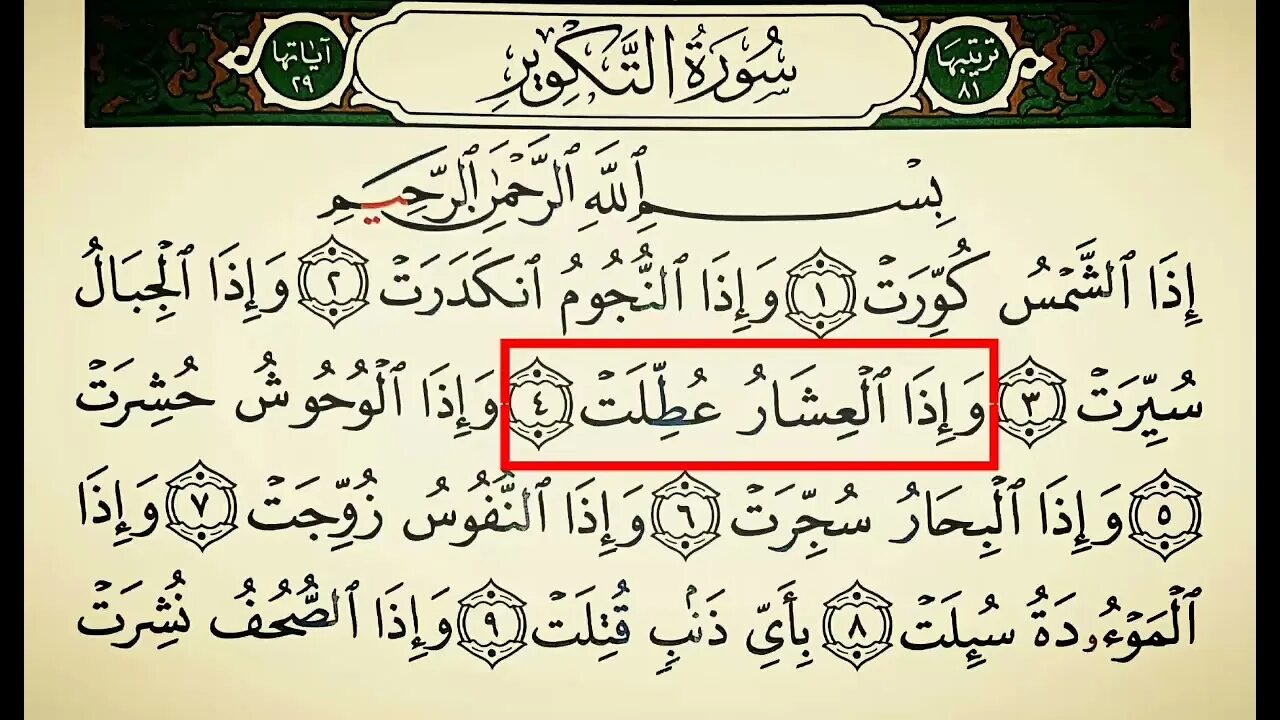 ترتيبها ٨١ سُورَةُ التَّكْوِيرِ آيَاتها ٢٩
بِسْمِ ٱللَّهِ ٱلرَّحْمَٰنِ ٱلرَّحِيمِ
إِذَا ٱلشَّمْسُ كُوِّرَتْ ١ وَإِذَا ٱلنُّجُومُ ٱنكَدَرَتْ ٢ وَإِذَا ٱلْجِبَالُ
سُيِّرَتْ ٣ وَإِذَا ٱلْعِشَارُ عُطِّلَتْ ٤ وَإِذَا ٱلْوُحُوشُ حُشِرَتْ
٥ وَإِذَا ٱلْبِحَارُ سُجِّرَتْ ٦ وَإِذَا ٱلنُّفُوسُ زُوِّجَتْ ٧ وَإِذَا
ٱلْمَوْءُۥدَةُ سُئِلَتْ ٨ بِأَىِّ ذَنۢبٍ قُتِلَتْ ٩ وَإِذَا ٱلصُّحُفُ نُشِرَتْ